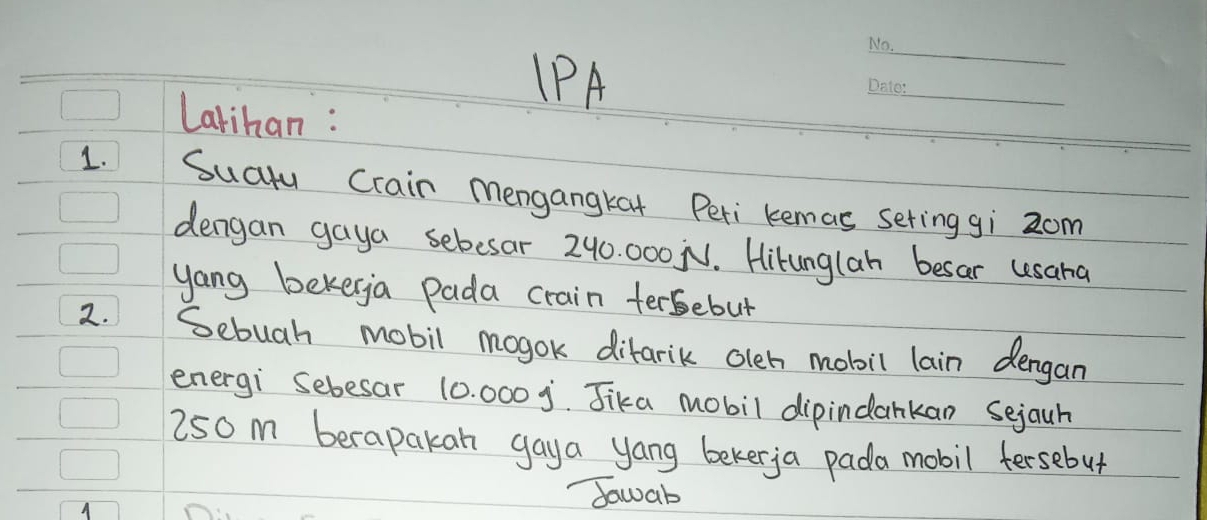 No.
IPA
Date:
Latihan :
1. Suatu Crain mengangkat Peti kemas setinggi 20m
dengan gaya sebesar 240.000 N. Hitunglah besar usaha
yang bekerja pada crain tersebut
2. Sebuah mobil mogok ditarik oleh mobil lain dengan
energi sebesar 10.000 j. Jika mobil dipindahkan sejauh
250 m berapakah gaya yang bekerja pada mobil tersebut
Jawab
1